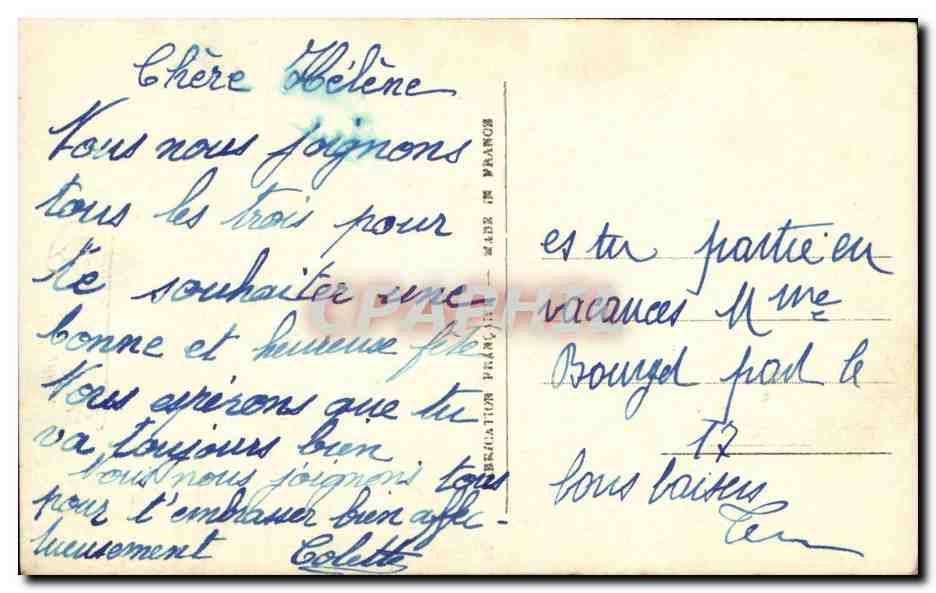 Chère Hélène
Nous nous joignons
tous les trois pour
te souhaiter une
bonne et heureuse fête
Nous espérons que tu
va toujours bien
Nous nous joignons tous
pour t'embrasser bien affec-
tueusement Colette
FABRICATION FRANÇAISE - MADE IN FRANCE
es tu partie en
vacances Mme
part le
17
bons baisers
CPAPHIL